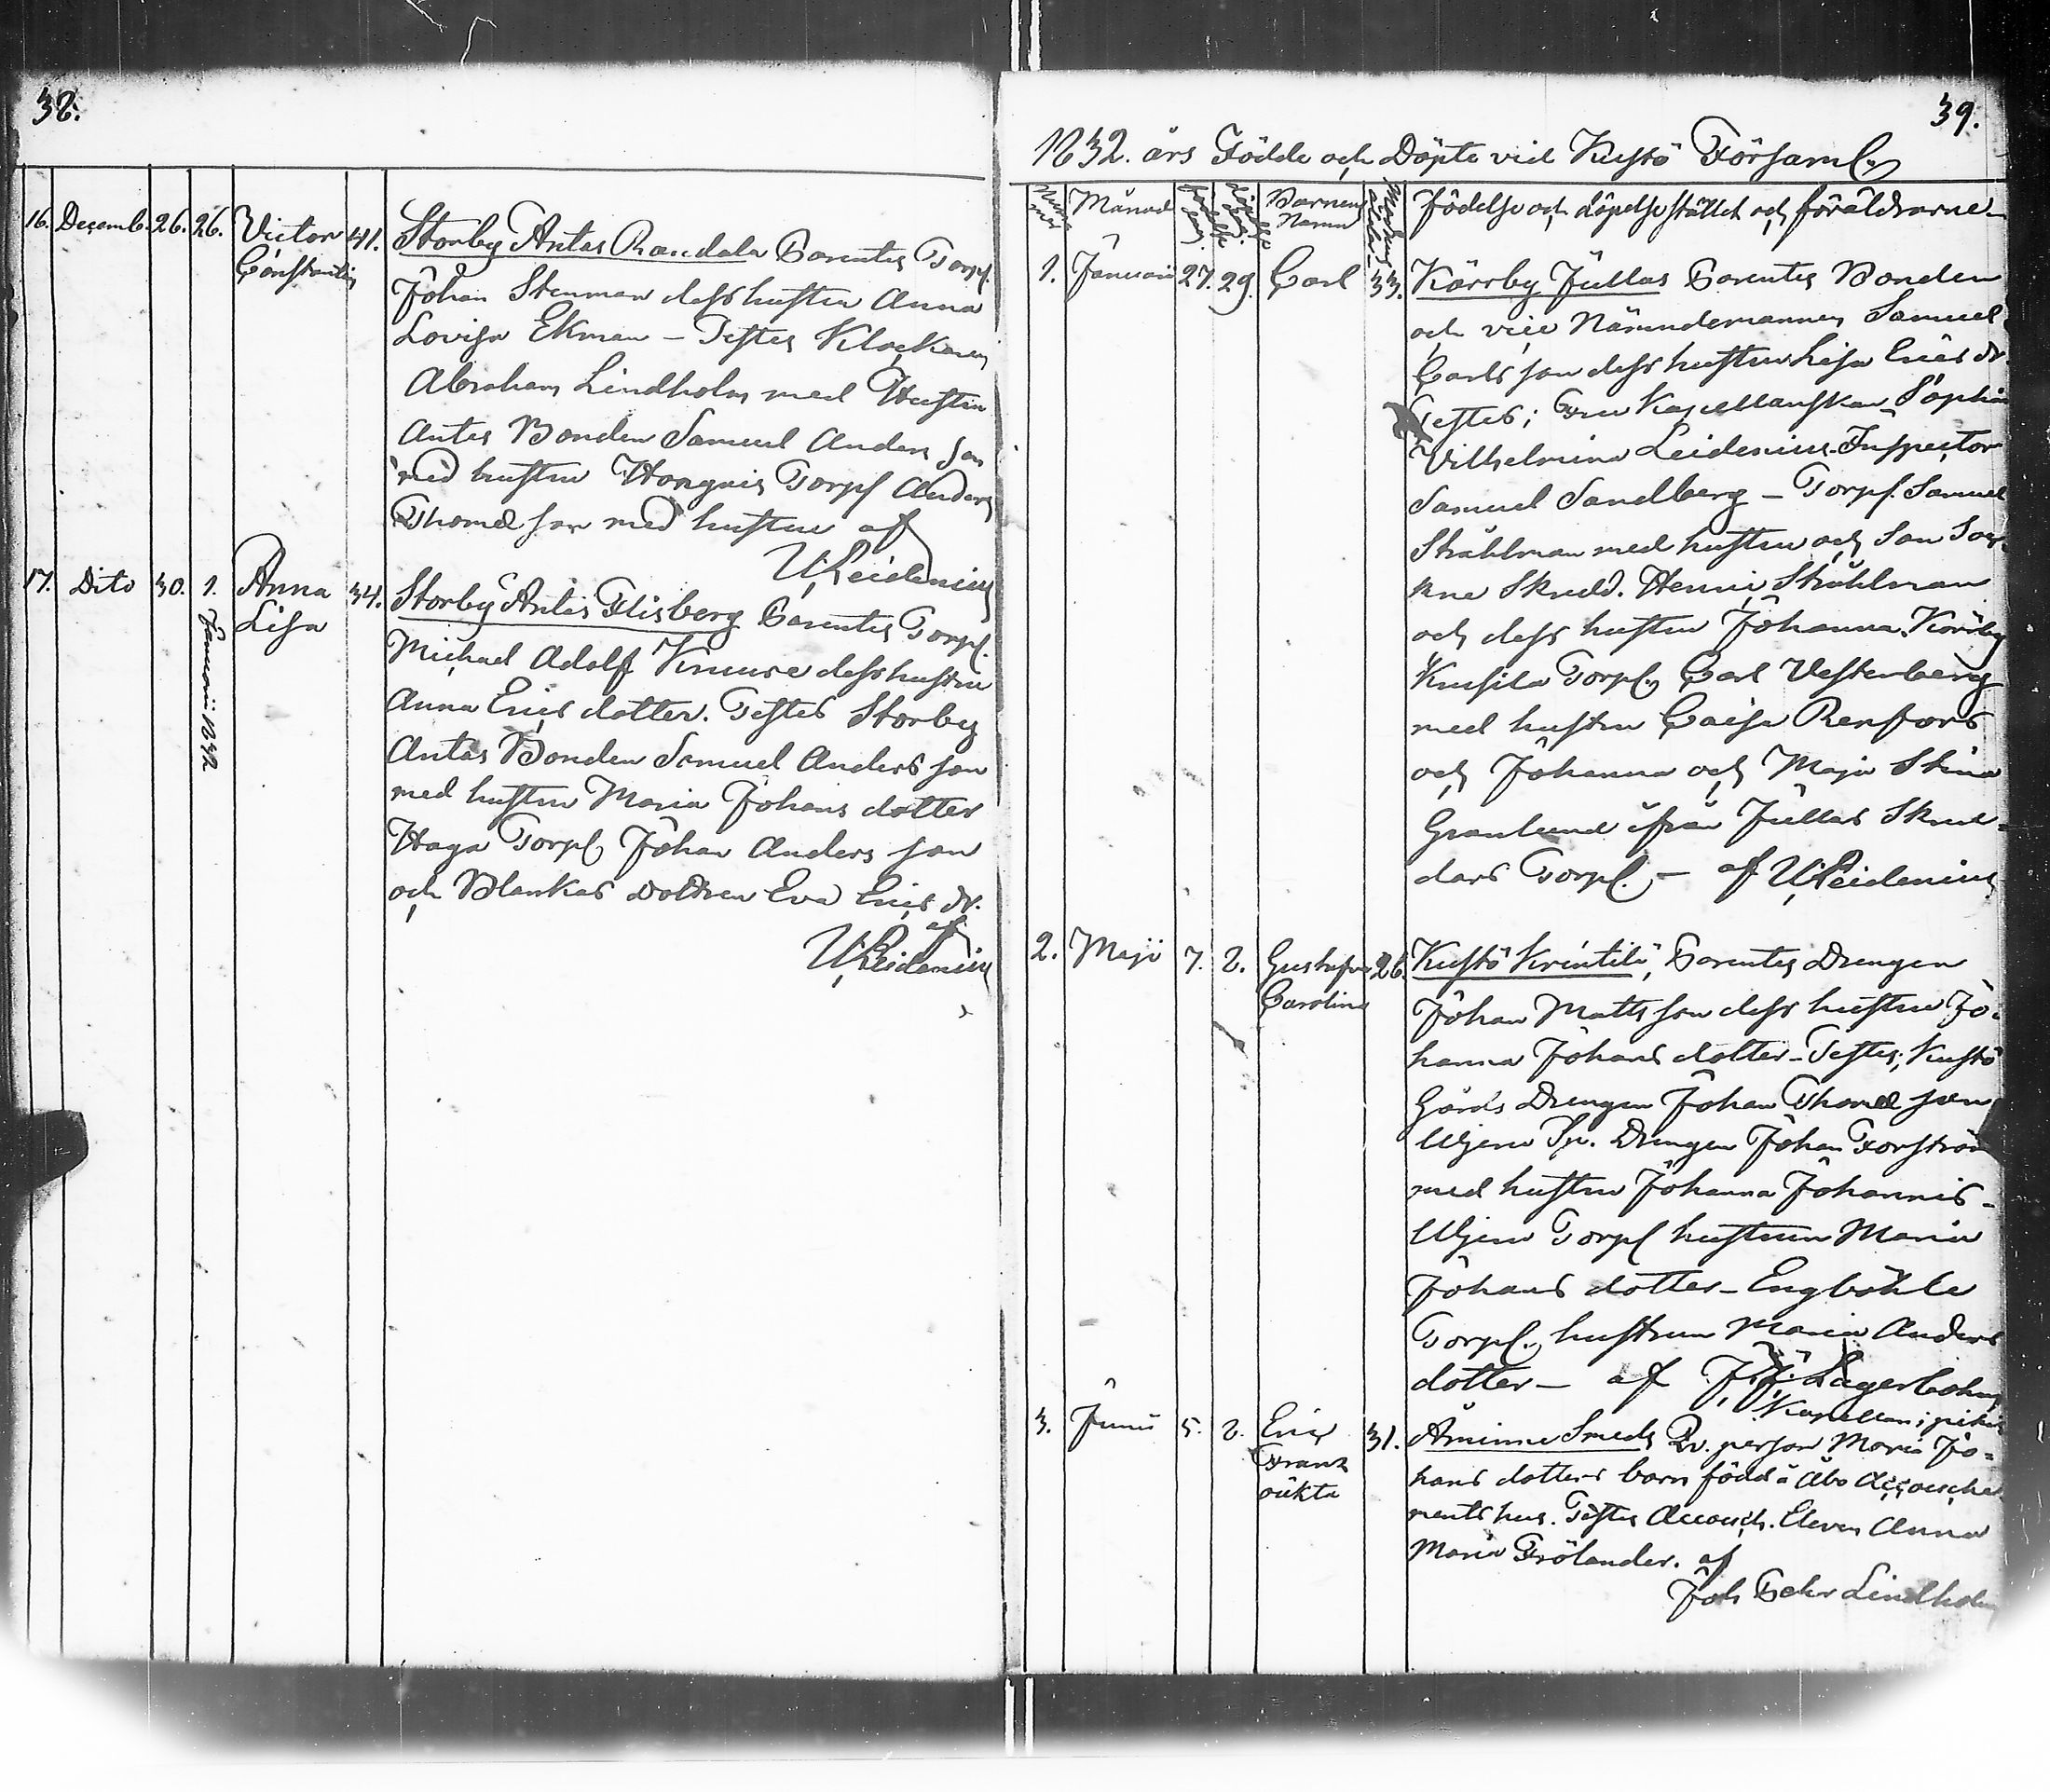 38.
16. Decemb. 26. 26. Victor Constantin 41. Storby Antas Randala Parentes Torp.
Johan Stenman dess hustru Anna
Lovisa Ekman – Testes Klockaren
Abraham Lindholm med Hustru
Antas Bonden Samuel Anders son
med hustru Torp Anders
Thomas son med hustru af
Leidenius
17. Dito 30. 1. Januarii 1832 Anna Lisa 34. Storby Antas Flisberg Parentes Torp.
Michael Adolf Knuuse dess hustru
Anna Erics dotter. Testes Storby
Antas Bonden Samuel Anders son
med hustru Maria Johans dotter
Haga Torp Johan Anders son
och Blankas dottren Eva Erics dr.
af
Leidenius
39.
1832. års Födde och Döpte vid Kustö Församl.
Månad Barnens Namn Födelse och döpelse stället och föräldrarne
1. Januarii 27. 29. Carl 33. Kärrby Jullas Parentes Bonden
och vice Nämndemannen Samuel
Carls son dess hustru Lisa Erics dr.
Testes; Fru Kapellanskan Sophia
Vilhelmina Leidenius. Inspector
Samuel Sandberg – Torp. Samuel
Stråhlman med hustru och Son Soc-
kne Skredd. Henric Stråhlman
och dess hustru Johanna. Kärrby
Torp. Carl Vesterberg
med hustru Caisa Renfors
och Johanna och Maja Stina
Granlund ifrån Jullas Skred-
dars Torp. – af Leidenius
2. Maji 7. 8. Gustafva Carolina 26. Kustö Krintilä, Parentes Drengen
Johan Matts son dess hustru Jo-
hanna Johans dotter – Testes; Kustö
Gårds Drengen Johan Thomas son
Drengen Johan Forström
med hustru Johanna Johannis-
Torp hustrun Maria
Johans dotter – Engböhle
Torp. hustrun Maria Anders
dotter – af J. J. Lagerbohm
Kapellan i
3. Junii 5. 8. Eric Frans oäkta 31. Åminne Smeds Qv. person Maria Jo-
hans dotters barn född i Åbo Accouche-
ments hus. Testes Accouch. Eleven Anna
Maria Frölander. af
Joh Pehr Lindholm